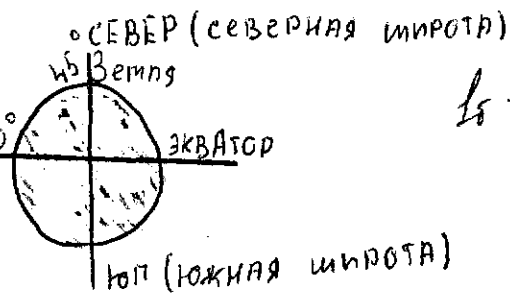 ° СЕВЕР (СЕВЕРНАЯ ШИРОТА)
45 Земля
0°
ЭКВАТОР
ЮГ (ЮЖНАЯ ШИРОТА)